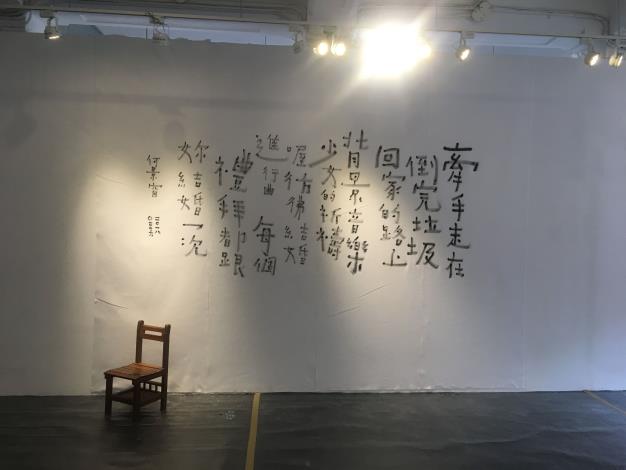 牽手走在
倒完垃圾
回家的路上
背景音樂
少女的祈禱
結婚
進行曲 每個
禮拜都跟
妳結婚一次
何景窗